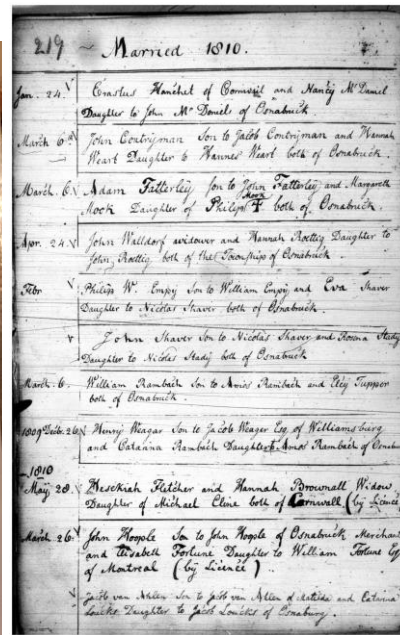 219 ~ Married 1810.
Jan. 24. Erastus Hanchet of Cornwall and Nancy Mc Daniel
Daughter to John Mc Daniels of Osnabruck
March 6 John Contryman Son to Jacob Contryman and Hannah
Weart Daughter to Hannes Weart both of Osnabruck.
March. 6. Adam Fatterley Son to John Fatterley and Margareth
Mock
Mock Daughter of Philip both of Osnabruck.
Apr. 24. John Walldorf widower and Hannah Roettig Daughter to
John Roettig both of the Township of Osnabruck
Febr Philip W. Empy Son to William Empy and Eva Shaver
Daughter to Nicolas Shaver both of Osnabruck.
John Shaver Son to Nicolas Shaver and Rosina Stady
Daughter to Nicolas Stady both of Osnabruck
March. 6. William Rambach Son to Amos Rambach and Tupper
both of Osnabruck.
1809 Decbr. 26 Henry Weagar Son to Jacob Weager Esq of Williamsburg
and Catarina Rambach Daughter Amos Rambach of
1810
May 28. Heseckiah Fletcher and Hannah Brownall Widow
Daughter of Michael Cline both of Cornwall (by Licence)
March 26. John Hoople Son to John Hoople of Osnabruck Merchant
and Elisabeth Fortune Daughter to William Fortune Esq
of Montreal (by Licence)
Jacob van Allen Son to Jacob van Allen of Matilda and Catarina
Loucks Daughter to Jacob Loucks of Osnaburg.